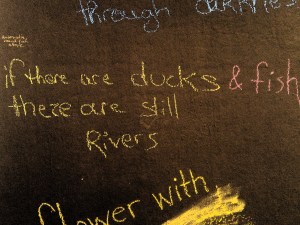 through darkness
if there are ducks & fish
there are still
Rivers
flower with